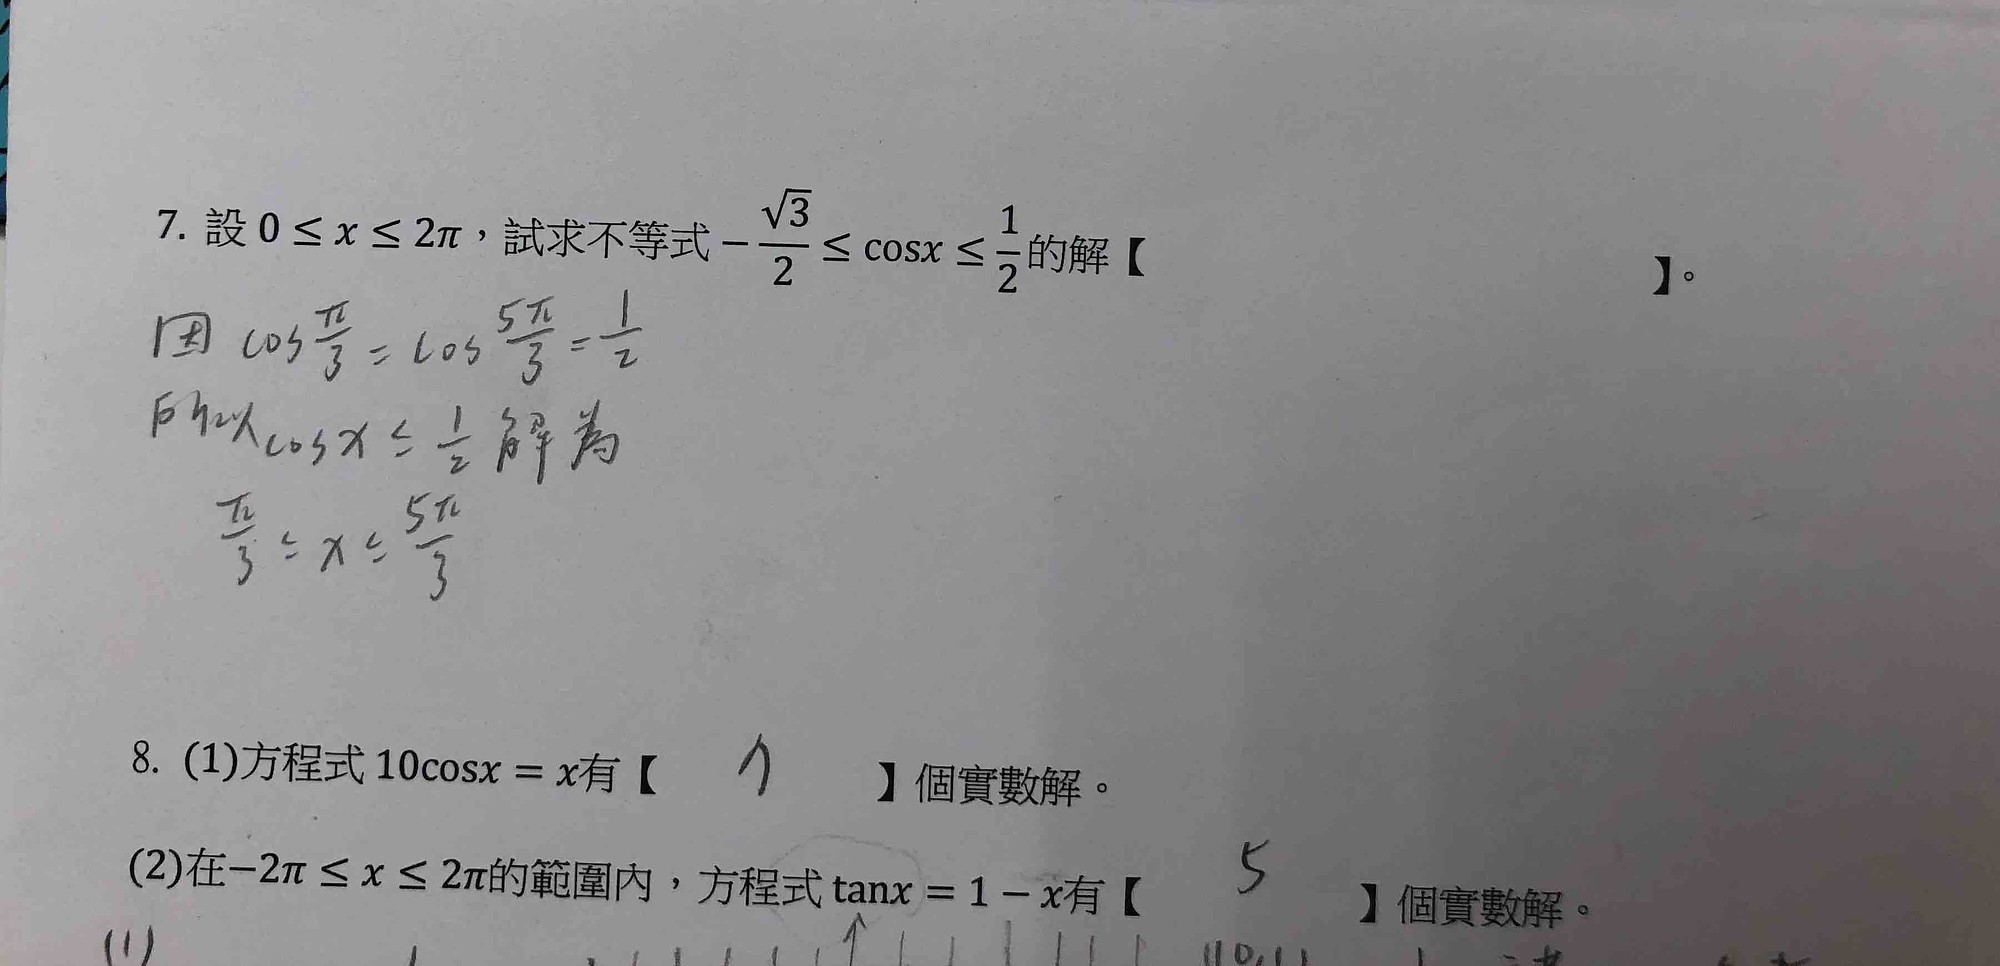 7. 設 0 ≤ x ≤ 2π，試求不等式 −√3/2 ≤ cosx ≤ 1/2 的解【 】。
因 cos π/3 = cos 5π/3 = 1/2
所以 cos x ≤ 1/2 解為
π/3 ≤ x ≤ 5π/3
8. (1)方程式 10cosx = x有【 7 】個實數解。
(2)在−2π ≤ x ≤ 2π的範圍內，方程式 tanx = 1 − x有【 5 】個實數解。
(1)